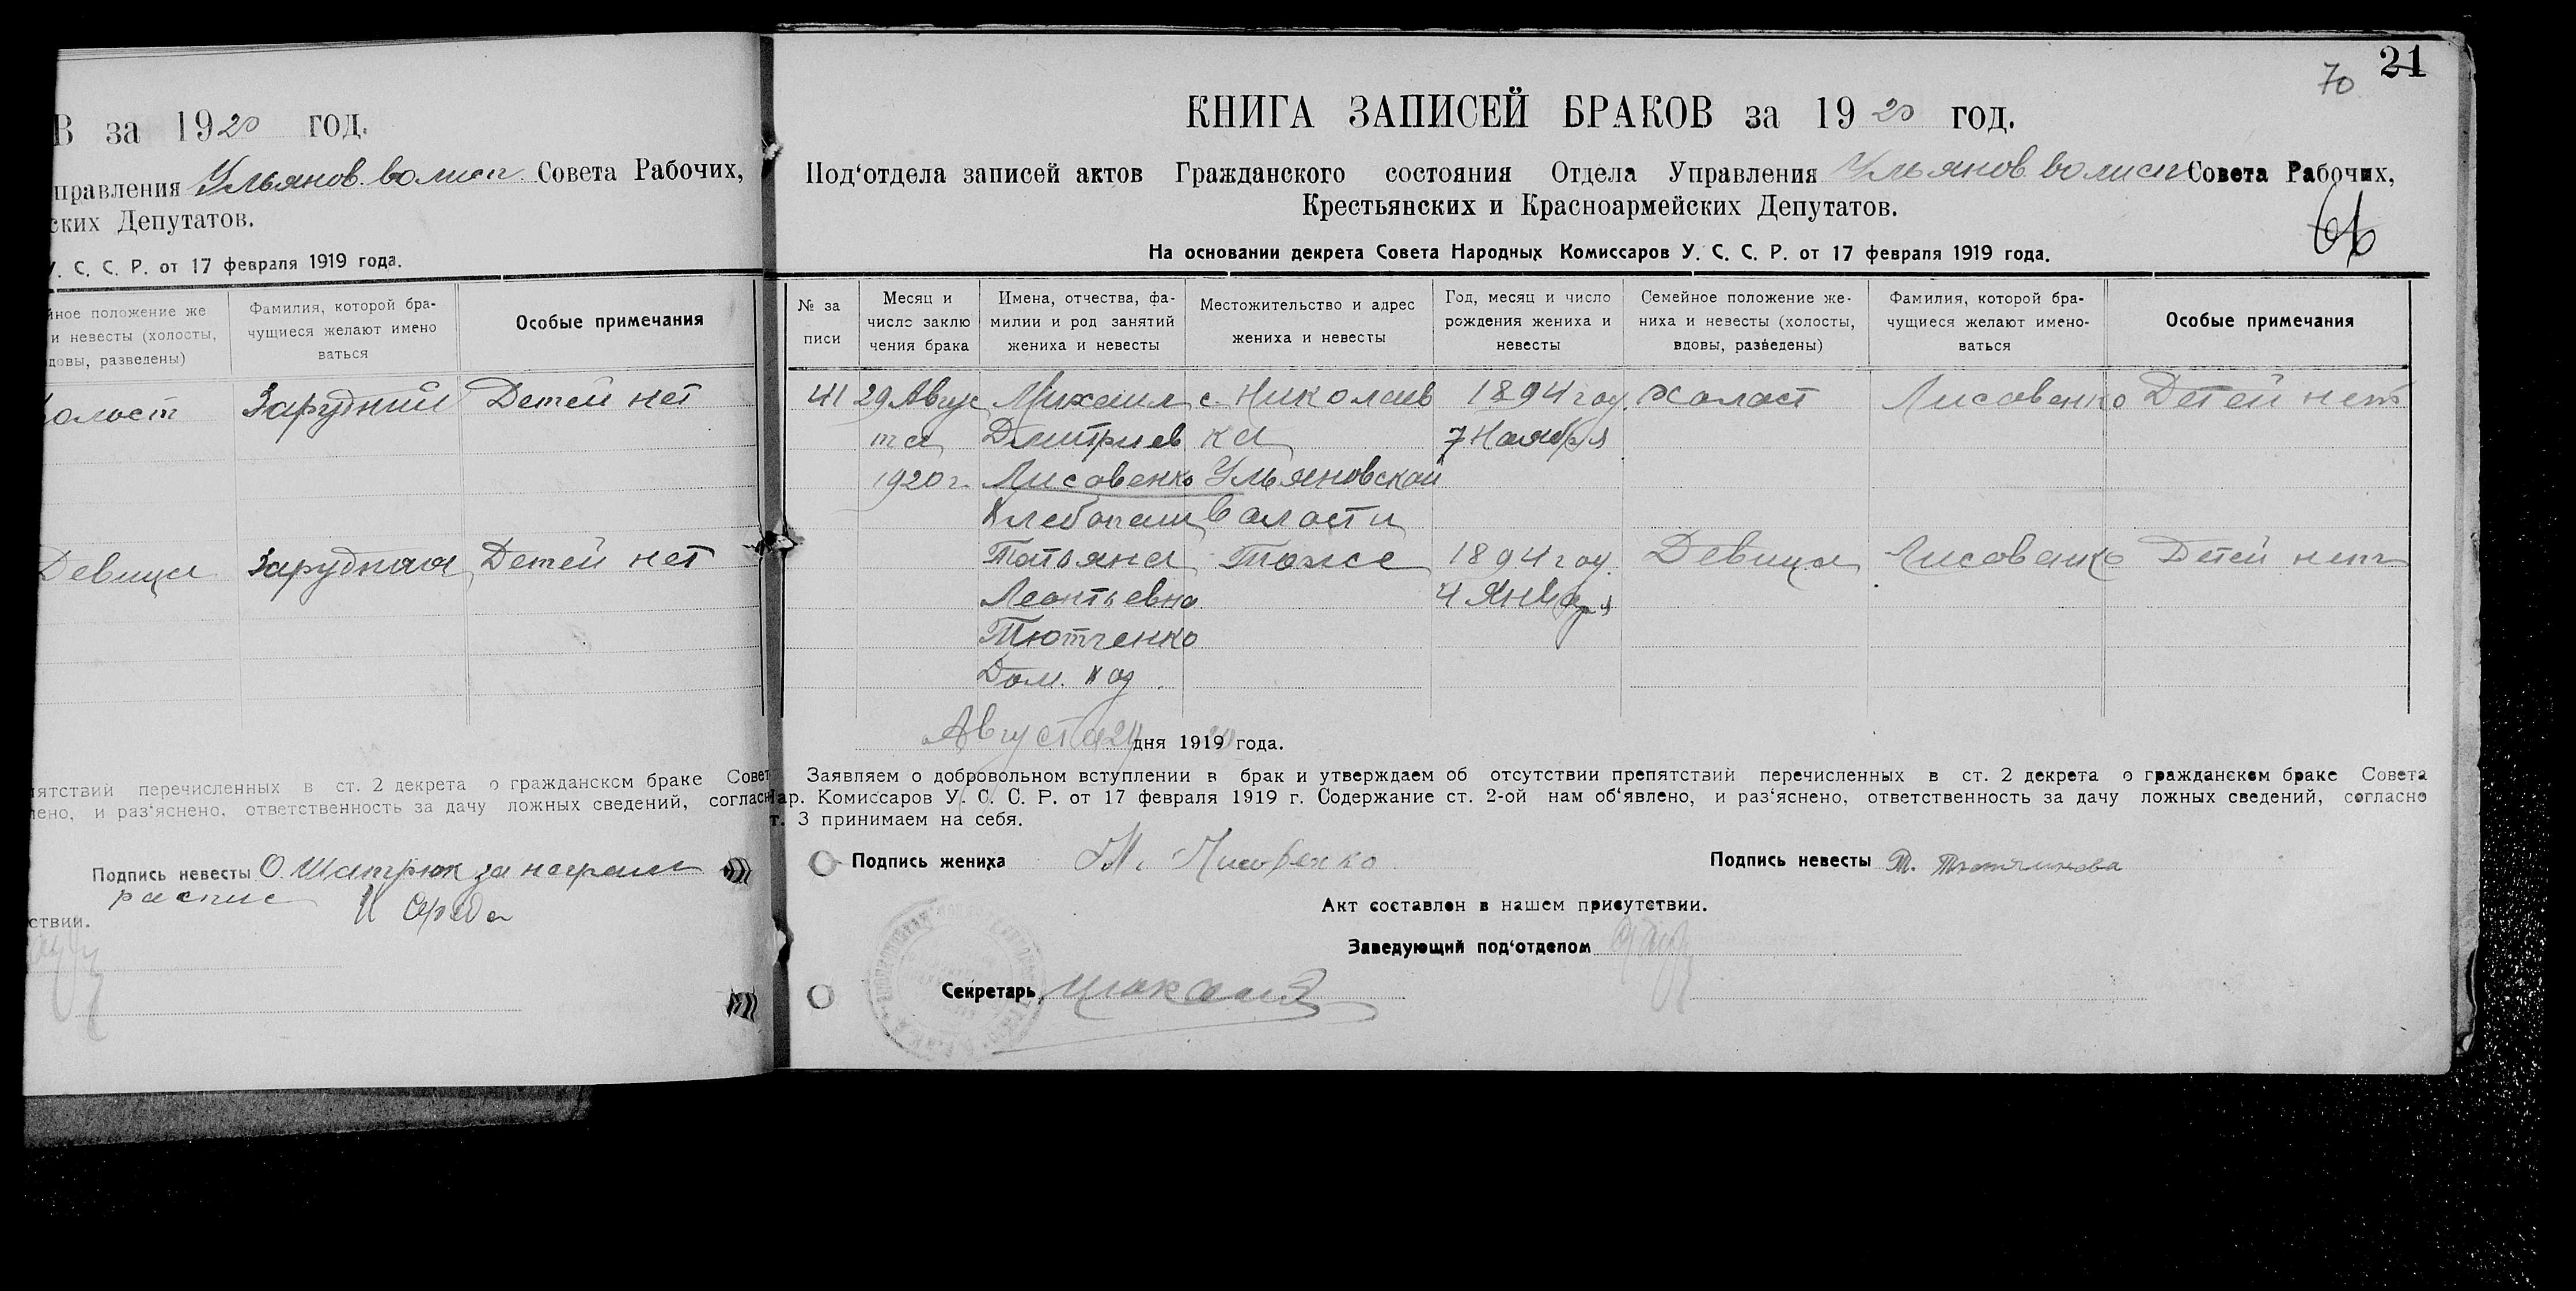 В за 1920 год.
правления Ульянов. волисп Совета Рабочих,
ских Депутатов.
У. С. С. Р. от 17 февраля 1919 года.
йное положение же
и невесты (холосты,
довы, разведены)
Фамилия, которой бра-
чущиеся желают имено
ваться
Особые примечания
Холост Зарудний Детей нет
Девица Зарудная Детей нет
пятствий перечисленных в ст. 2 декрета о гражданском браке Совет
лено, и раз‘яснено, ответственность за дачу ложных сведений, согласн
Подпись невесты О. Шапрюк за неграм
распис
ствии.
21
70
66
КНИГА ЗАПИСЕЙ БРАКОВ за 1920 год.
Под‘отдела записей актов Гражданского состояния Отдела Управления Ульянов волисп Совета Рабочих,
Крестьянских и Красноармейских Депутатов.
На основании декрета Совета Народных Комиссаров У. С. С. Р. от 17 февраля 1919 года.
№ за
писи
Месяц и
число заклю
чения брака
Имена, отчества, фа-
милии и род занятий
жениха и невесты
Местожительство и адрес
жениха и невесты
Год, месяц и число
рождения жениха и
невесты
Семейное положение же-
ниха и невесты (холосты,
вдовы, разведены)
Фамилия, которой бра-
чущиеся желают имено-
ваться
Особые примечания
41 29 Авгус Михаил с. Николаев 1894 год. Холост Лисовенко Детей нет
та Дмитриев ка 7 Ноября
1920 г. Лисовенко Ульяновской
Хлебопаш Волости
Татьяна Тоже 1894 год. Девица Лисовенко Детей нет
Леонтьевна 4 Января
Тютченко
Дом. хоз.
Августа 24 дня 1919 года.
Заявляем о добровольном вступлении в брак и утверждаем об отсутствии препятствий перечисленных в ст. 2 декрета о гражданском браке Совета
Нар. Комиссаров У. С. С. Р. от 17 февраля 1919 г. Содержание ст. 2-ой нам об‘явлено, и раз‘яснено, ответственность за дачу ложных сведений, согласно
т. 3 принимаем на себя.
Подпись жениха М. Лисовенко Подпись невесты Т.
Акт составлен в нашем присутствии.
Заведующий под‘отделом
Секретарь